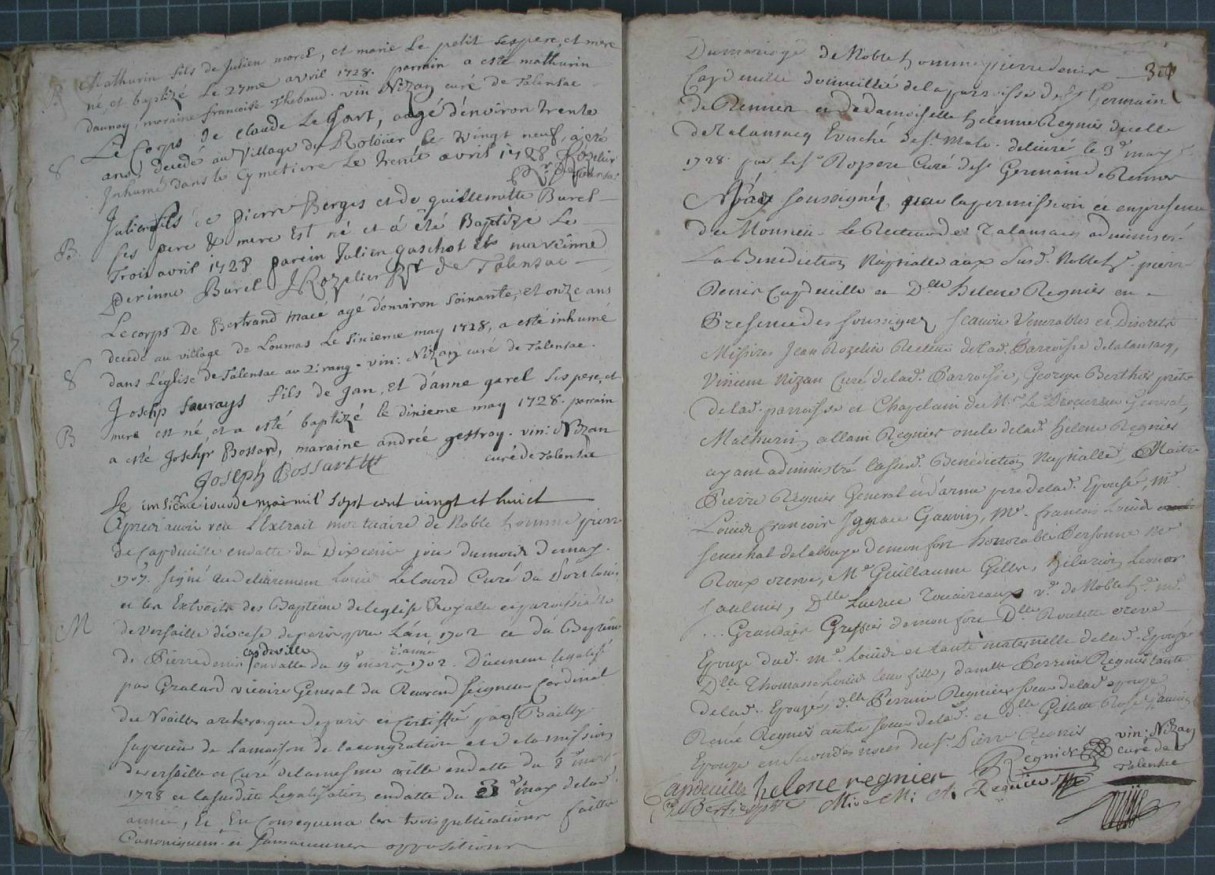 Mathurin fils de Julien morel, et marie Le petit ses pere, et mere
né et baptizé Le 27me avril 1728. parrain a esté mathurin
Launay, maraine francoise Thebaud. vin: Nizan curé de Talensac
S
Le Corps de Claude Le Gart, agé d'environ trente
ans, decedé au village du Rotoüer le vingt neuf a été
Inhumé dans le Cymetiere Le trente avril 1728 J Rozelier
Rr de Talensac
B
Julien fils de pierre Berges et de guillemette Burel
ses pere & mere Est né et a été Baptizé Le
Trois avril 1728 parein Julien gaschot et mareinne
Perinne Burel J Rozelier Rr de Talensac
S
Le corps de Bertrand macé agé d'environ soixante, et onze ans
decedé au village de Loumas Le sixieme may 1728, a esté inhumé
dans L'église de Talensac au 2: rang. vin: Nizan curé de Talensac.
B
Joseph saurays fils de Jan, et d'anne garel ses pere, et
mere est né et a esté baptizé le dixieme may 1728. parrain
a esté Joseph Bossard, maraine andrée gesfroy. vin: Nizan
curé de Talensac
Joseph Bossart
Le onsième iour de mai mil sept cent vingt et huict
M
Apres avoir veu L'Extrait mortuaire de Noble homme pierre
de Capdeville en datte du Dixieme jour du mois de may
1707. signé au delivrement Louis Lelourd Curé du Port Louis
et les Extraits des Baptême de l'eglise Royalle et paroissialle
de Versaille diocese de paris pour L'an 1702 et du Baptême
de Pierre denis capdeville en datte du 19e mars d. anne 1702. Düement legalisé
par Gralard vicaire General du Reverend seigneur Cardinal
de Noailles archevesque de paris et certiffié par Bailly
superieur de La maison de la congration et de la mission
de versaille et Curé de la mesme ville en datte du 3e mars
1728 et la susditte Legalisation en datte du 3e may de lad.
annee, Et En Consequence les trois publications faittes
Canoniquem. et sans aucune opposition
30
Du mariage de Noble homme pierre denis
Capdeville domicilié de la parroisse de St Germain
de Rennes et de damoiselle helenne Regnié de celle
de Talansacq Evêché de St Malo. delivré le 3e may
1728. par le Sr Ropere Curé de St Germain de Rennes
soussigné, par la permission et en presence
de Monsieur Le Recteur de Talansac administré
La Benediction Nuptialle aux susd. Noble h. pierre
Denis Capdeville et Dlle helene Regniés en
Presence des soussignez scavoir Venerables et Discrets
Missires Jean Rozelier Recteur de lad. Parroisse de Talansacq,
Vincent Nizan Curé de lad. Parroisse, Georges Berthier prêtre
de lad. parroisse et Chapelain de Mr Le Procureur General,
Mathurin allain Regnier oncle de lad. helene Regnier
ayant administré la susd. Benediction Nuptialle, Maitre
Pierre Regnies General et d'arme pere de lad. Epousé, Me
Louis francois Ignace Gauvin, Me. francois Louis
senechal de l'abaye de monfort honorable Personne
Roux, Me Guillaume Gilles, hilarion Lemoine
saulnier, Dlle Lucrece ve. de Noble h.
Grandais Greffier de monfort Dlle
Epouze dud. me. Louis et tante maternelle de lad. Epouzé
Dlle Thomase Louis leur fille, damlle Perrine Regnies tante
de lad. Epouzé, dlle Perrine Regniers soeur de lad. epouzé
Renée Regnies autre soeur de lad. et Dlle Gillette Rose gauvin
Epouze en secondes noces du Sr. Pierre Regnies
vin: Nizan
curé de
Talensac
Capdeville helene regnier Regnier